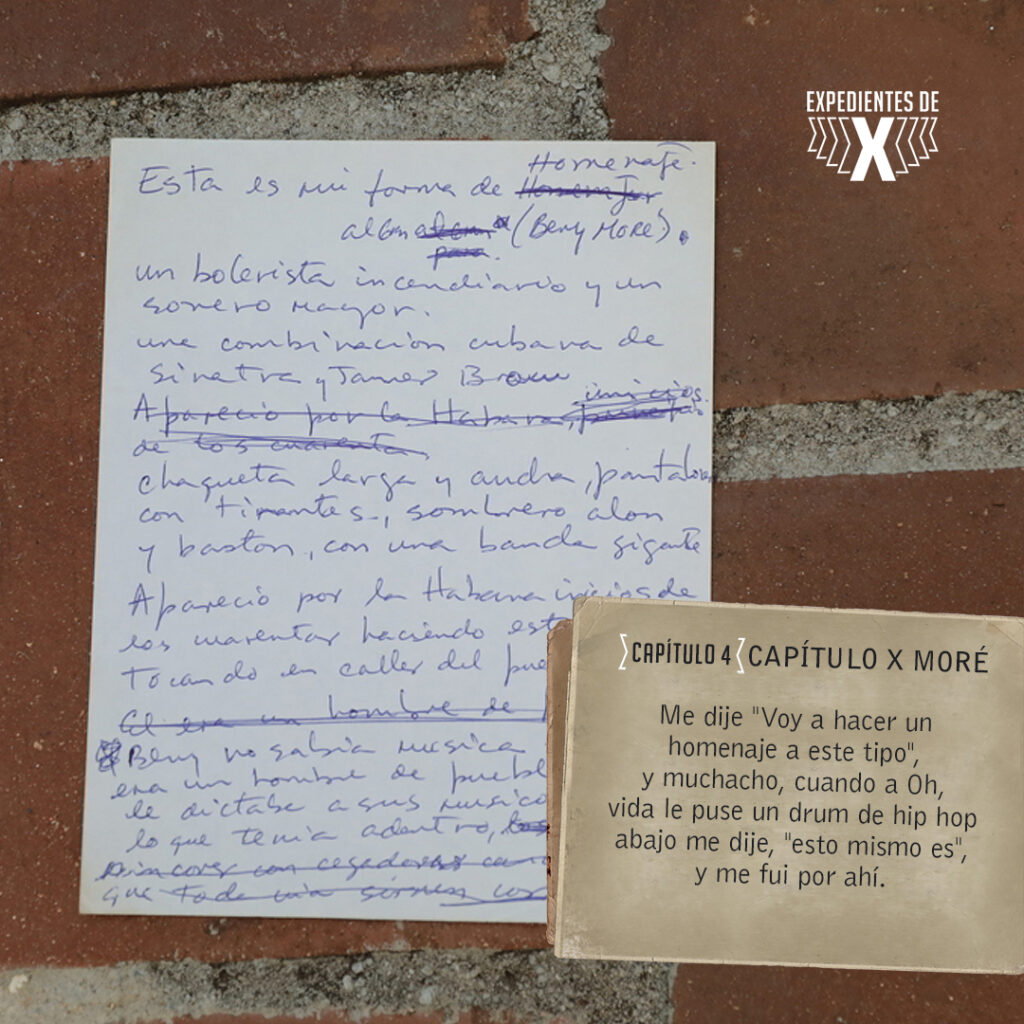 EXPEDIENTES DE
X
Homenaje
Esta es mi forma de
(Beny Moré).
para
un bolerista incendiario y un
sonero mayor.
una combinación cubana de
Sinatra y James Brown
inicios
Apareció por la Habana,
de los cuarenta,
chaqueta larga y ancha, pantalon
con tirantes, sombrero alon
y baston, con una banda gigante
Apareció por la Habana inicios de
los cuarentas haciendo est
Tocando en calles del pue
El era un hombre de
Beny no sabía musica
era un hombre de puebl
le dictaba a sus musico
lo que tenia adentro,
que todavia
CAPÍTULO 4 CAPÍTULO X MORÉ
Me dije "Voy a hacer un
homenaje a este tipo",
y muchacho, cuando a Oh,
vida le puse un drum de hip hop
abajo me dije, "esto mismo es",
y me fui por ahí.